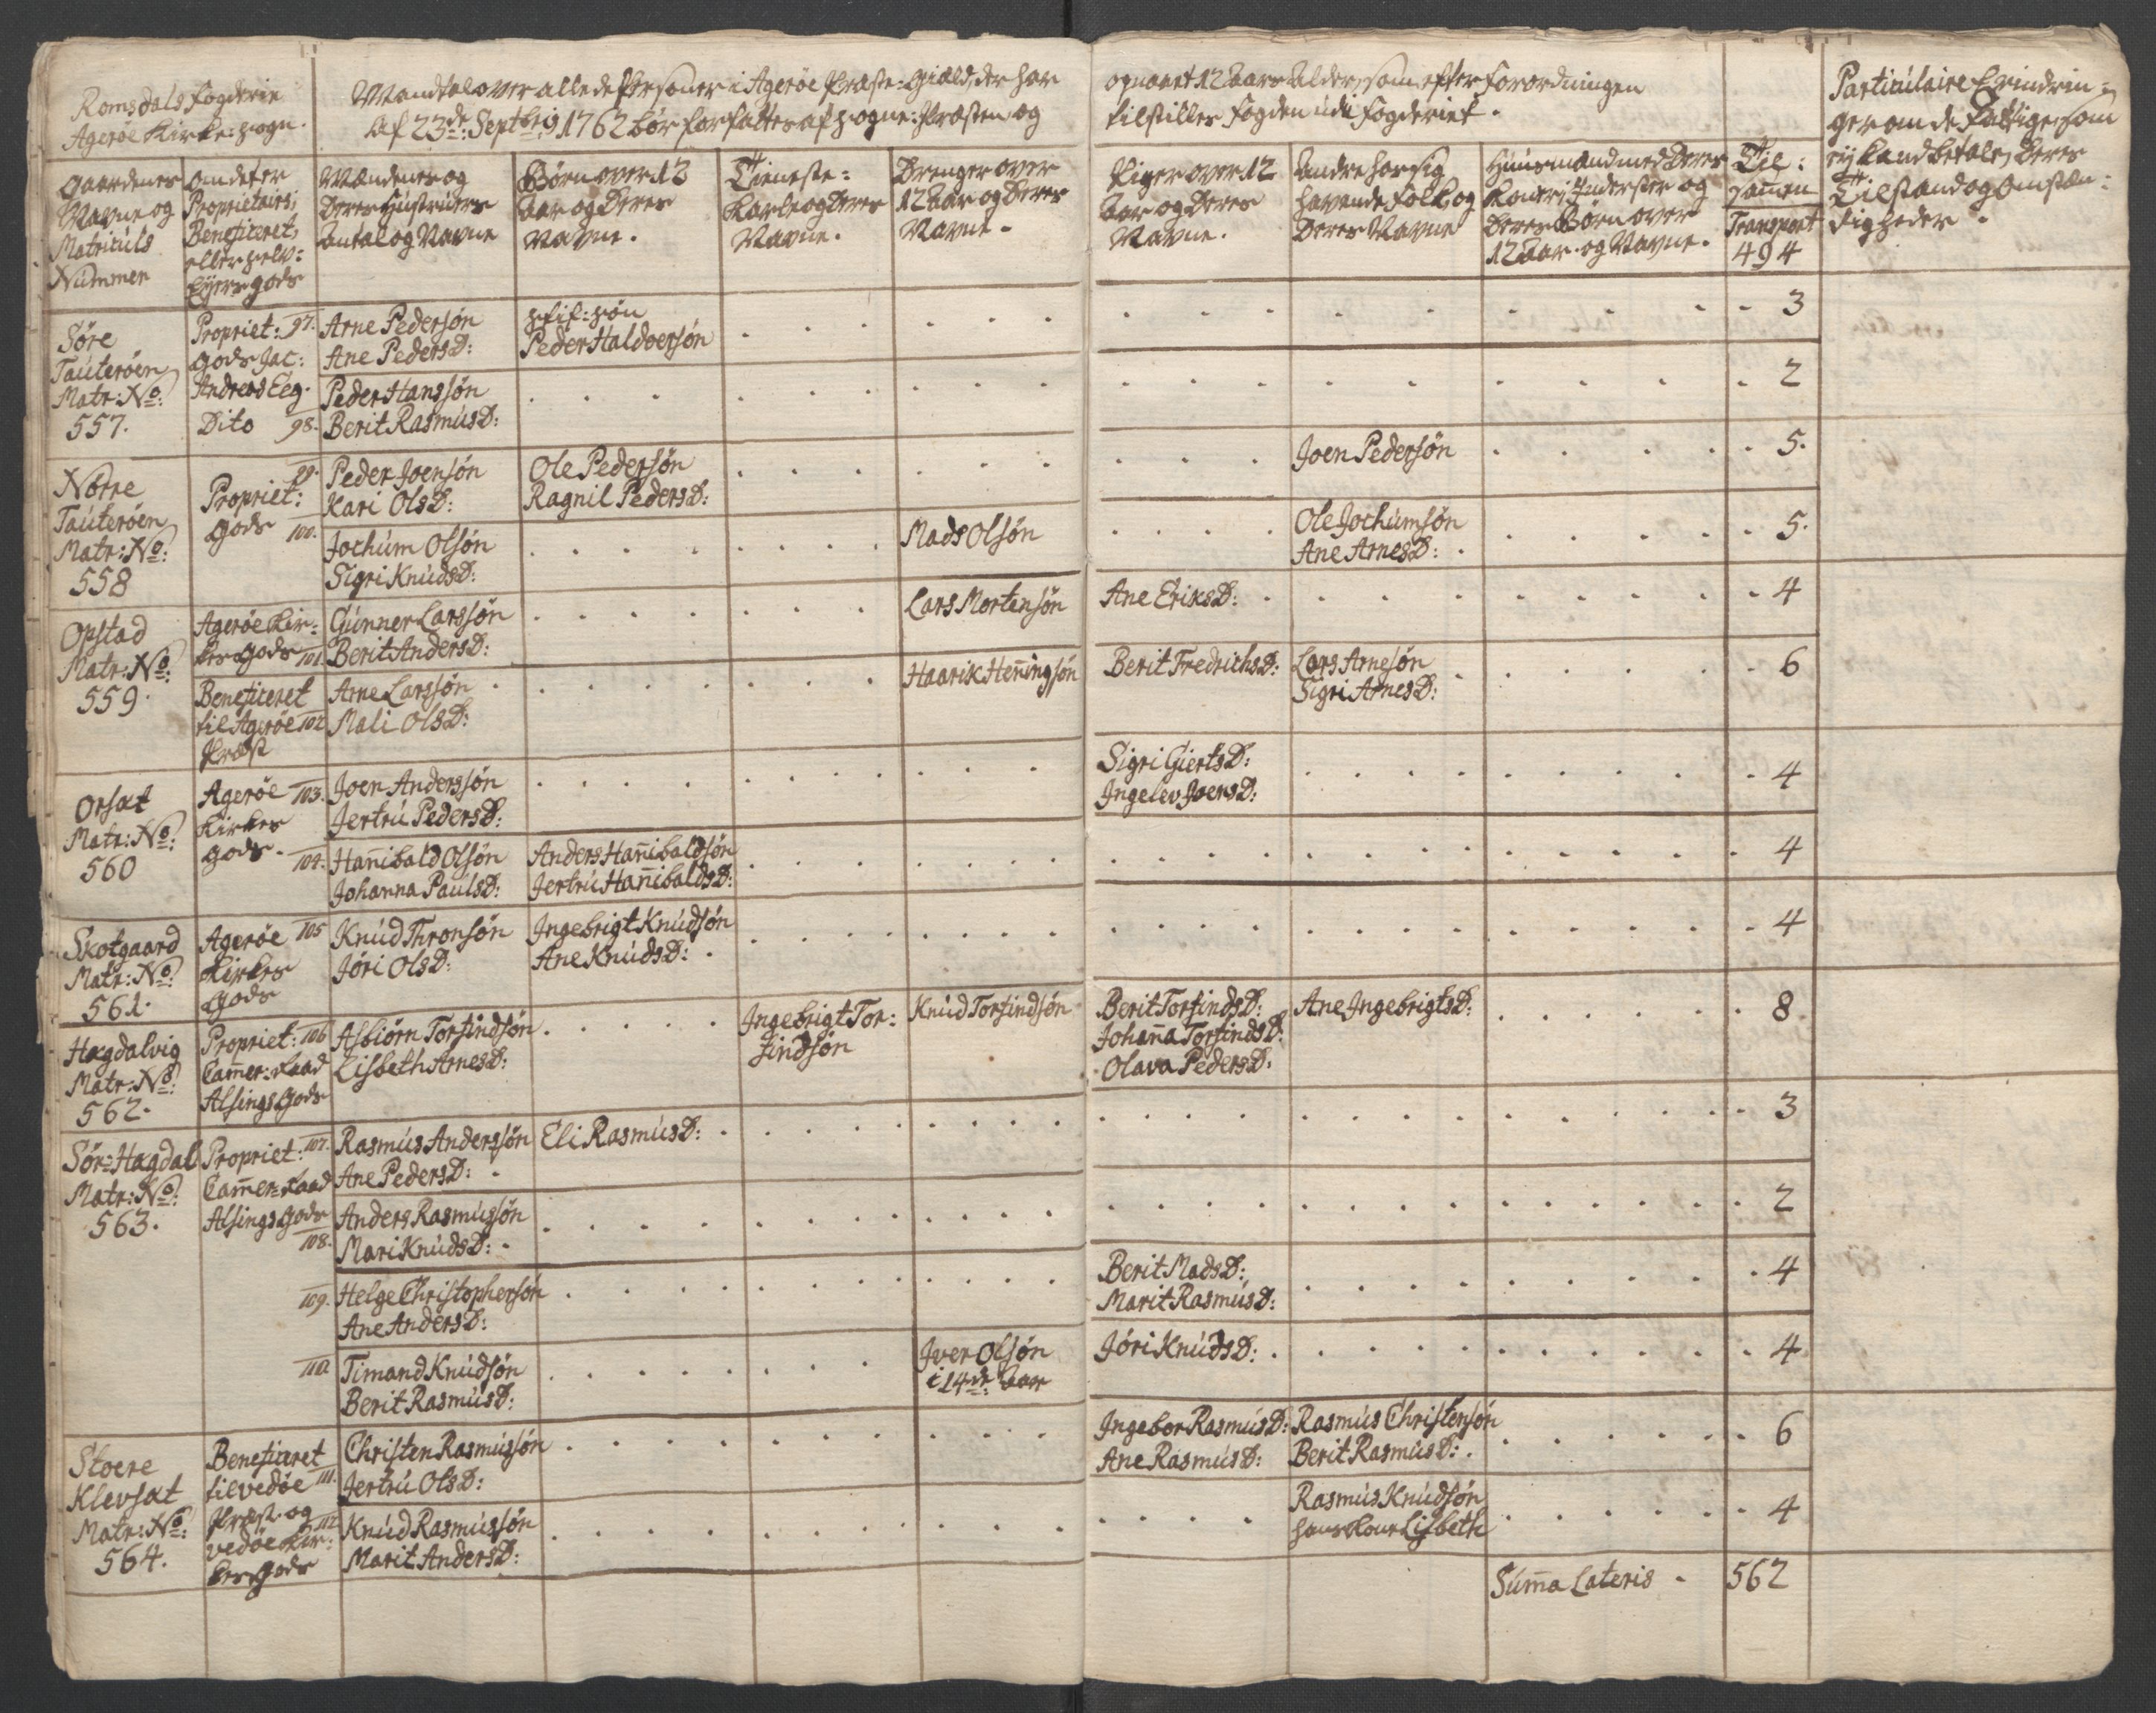 Romsdals fogderie
Agerøe Kirke-Sogn.
Mandtal over alle de Personer i Agerøe Præste-Giæld, der har
Af 23de Septbris 1762 bør forfattes af Sogne-Præsten og
opnaaet 12 Aars Alder, som efter Forordningen
tilstilles Fogden udi Fogderiet.
Particulaire Erindrin-
ger om de Fattige, som
ej kand betale, Deres
Tilstand og Omstæn-
digheder.
Gaardenes
Navne og
Matriculs
Nummer
Om det er
Proprietairs,
Beneficeret,
eller Selv-
Ejersgods
Mandenes og
Deres Hustruers
Antal og Navne
Børn over 12
Aar og Deres
Navne.
Tieneste-
Karle og Deres
Navne.
Drenger over
12 Aar og Deres
Navne.
Piger over 12
Aar og Deres
Navne.
Andre hos sig
havende Folk og
Deres Navne
Huusmænd med Deres
Koner, Inderster og
Deres Børn over
12 Aar og Navne.
Til-
samen
Transport
494
Søre
Tauterøen
Matr: No:
557.
Propriet: 97.
Gods Jac:
Andreas Eeg.
Arne Pedersøn
Ane PedersD:
Stif-Søn
Peder Haldoersøn
3
Dito 98.
Peder Hanssøn
Berit RasmusD:
2
Nørre
Tauterøen
Matr: No:
558
Propriet:
Gods
99.
Peder Joensøn
Kari OlsD:
Ole Pedersøn
Ragnil PedersD:
Joen Pedersøn
5.
100.
Jochum Olsøn
Sigri KnudsD:
Mads Olsøn
Ole Jochumsøn
Ane ArnesD:
5.
Opstad
Matr: No:
559.
Agerøe Kir-
kes Gods 101.
Gunner Larssøn
Berit AndersD:
Lars Mortensøn
Ane EriksD:
4
Beneficeret
til Agerøe 102
Præst
Arne Larssøn
Mali OlsD:
Haarik Heningsøn
Berit FredrichsD:
Lars Arnesøn
Sigri ArnesD:
6
Orsæt
Matr: No:
560
Agerøe 103.
Kirkes
Gods.
Joen Anderssøn
Jertru PedersD:
Sigri GiertsD:
Ingelev JoensD:
4
104.
Hanibald Olsøn
Johanna PaulsD:
Anders Hanibaldsøn
Jertru HanibaldsD:
4
Skotgaard
Matr: No:
561.
Agerøe 105
Kirkes
Gods
Knud Thronsøn
Jøri OlsD:
Ingebrigt Knudsøn
Ane KnudsD:
4
Hægdalvig
Matr: No:
562.
Propriet: 106
Camer-Raad
Alsings Gods
Asbiørn Torfindsøn
Lisbeth ArnesD:
Ingebrigt Tor-
findsøn
Knud Torfindsøn
Berit TorfindsD:
Johana TorfindsD:
Olava PedersD:
Ane IngebrigtsD:
8
Sør-Hægdal
Matr: No:
563.
Propriet: 107.
Camer-Raad
Alsings Gods
Rasmus Anderssøn
Ane PedersD:
Eli RasmusD:
3
108.
Anders Rasmussøn
Mari KnudsD:
2
109.
Helge Christophersøn
Ane AndersD:
Berit MadsD:
Marit RasmusD:
4
110
Timand Knudsøn
Berit RasmusD:
Iver Olsøn
i 14de Aar
Jøri KnudsD:
4
Stoere
Klevsæt
Matr: No:
564.
Beneficeret
til vedøe 111.
Præst og
Christen Rasmussøn
Jertru OlsD:
Ingebor RasmusD:
Ane RasmusD:
Rasmus Christensøn
Berit RasmusD:
6
112
vedøe Kir-
kes Gods
Knud Rasmussøn
Marit AndersD:
Rasmus Knudsøn
hans Kone Lisbeth
4
Suma Lateris 562